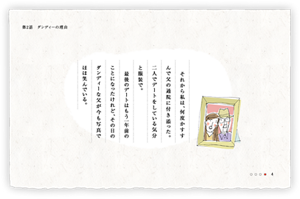 第2話　ダンディーの理由
それから私は、何度かすすんで父の通院に付き添った。
二人でデートをしている気分と服装で。
最後のデートはもう二年前のことになったけれど、その日のダンディーな父が今も写真でほほ笑んでいる。
4